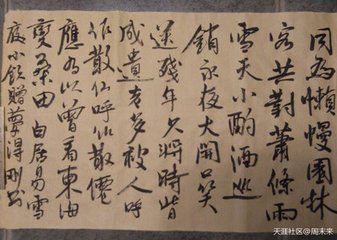 同為懶慢園林
客共對蕭條雨
雪天小酌酒巡
銷永夜大開口笑
送殘年久將時背
成遺老多被人呼
作散仙呼作散僊
應有以曾看東海
變桑田 白居易雪
夜小飲贈夢得 刚书
天涯社区@周末来